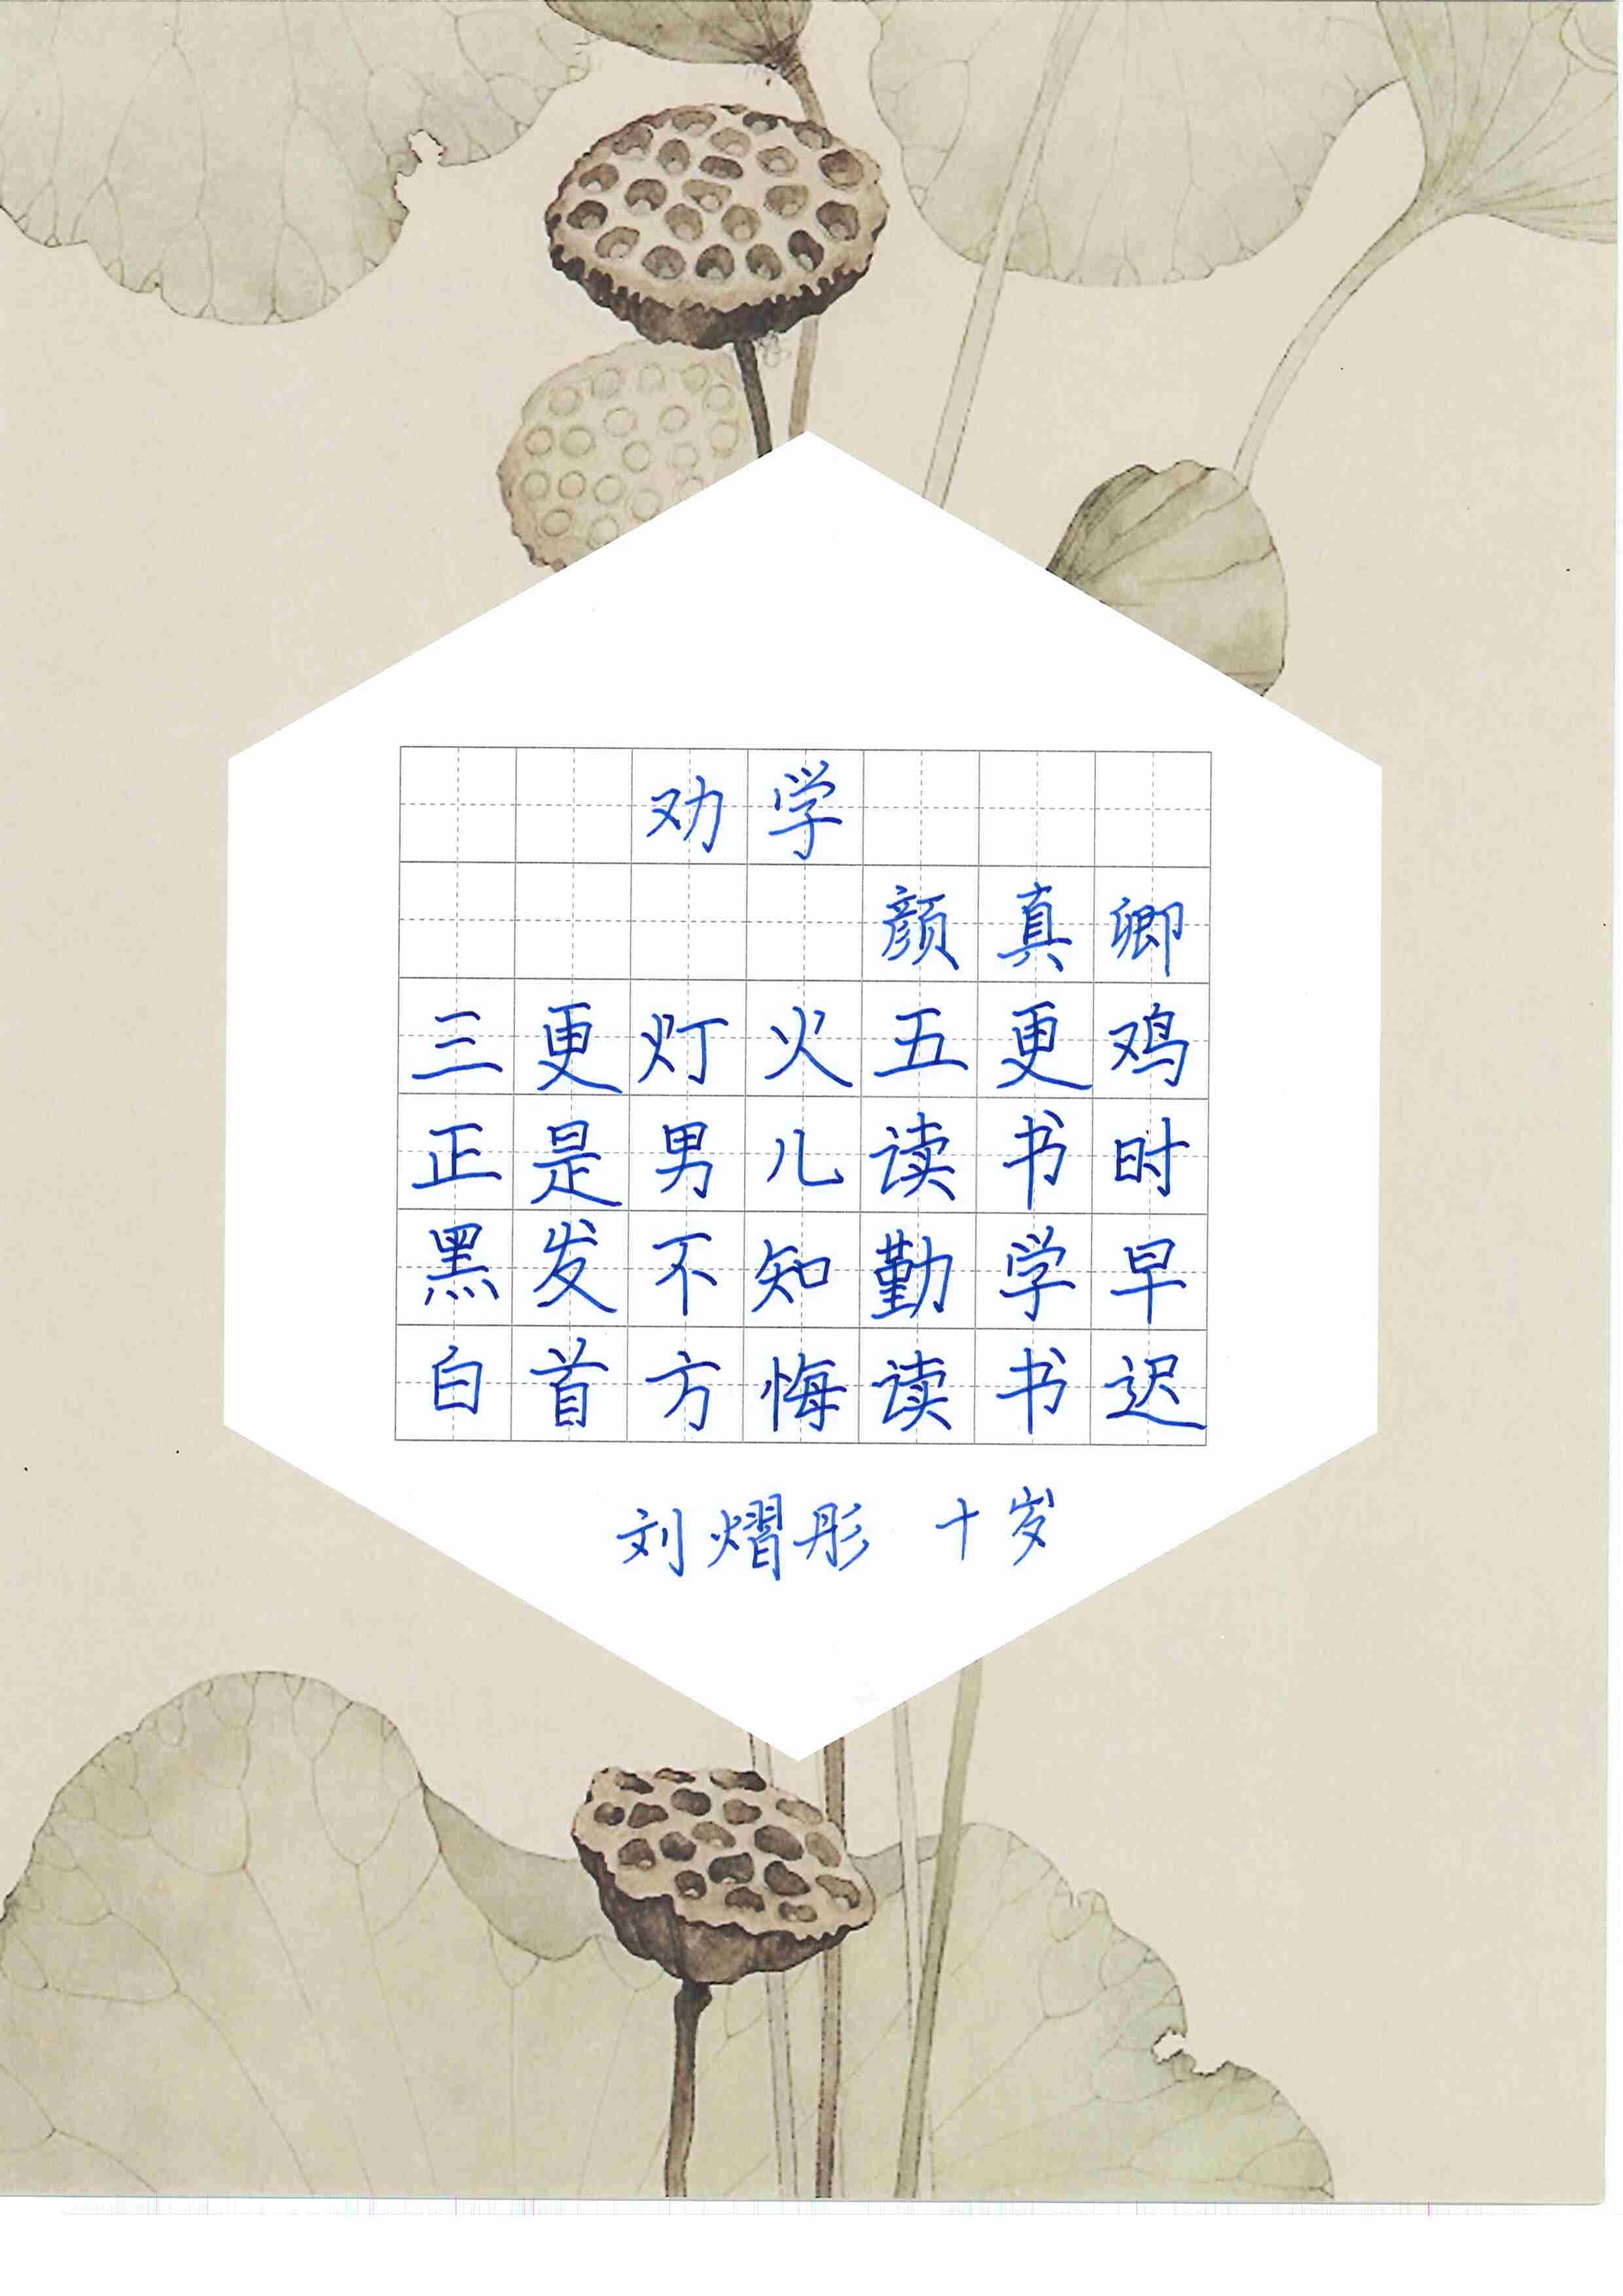 劝学
颜真卿
三更灯火五更鸡
正是男儿读书时
黑发不知勤学早
白首方悔读书迟
刘熠彤 十岁